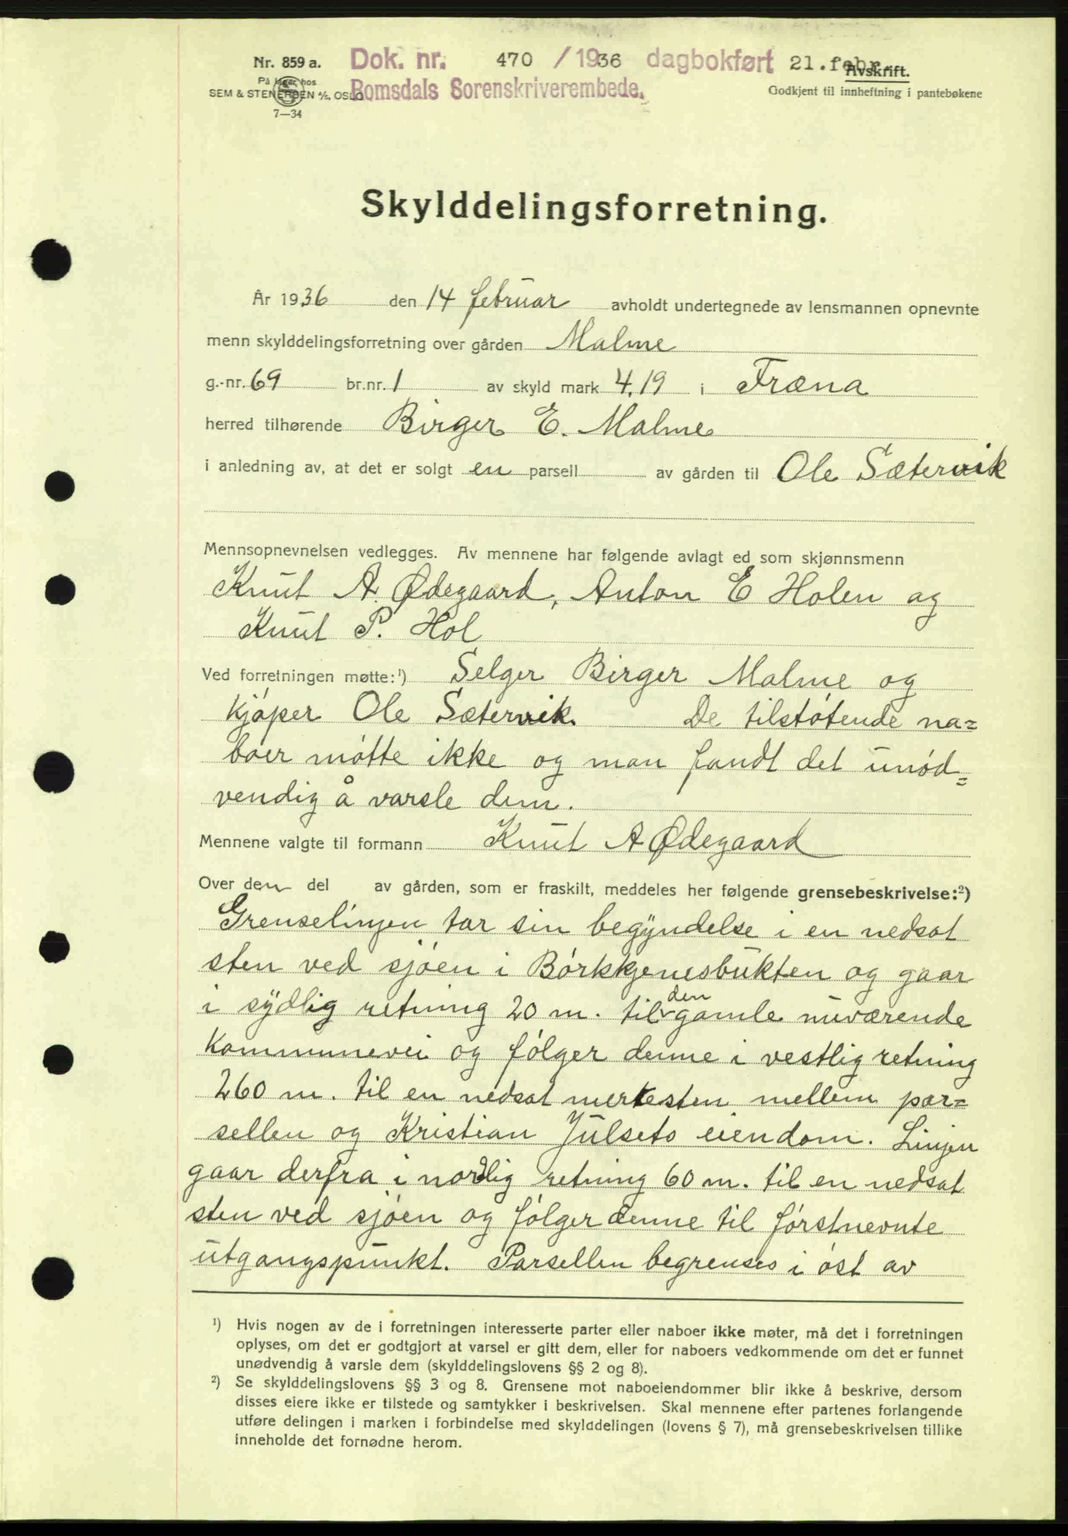 Nr. 859 a. Dok. nr. 470 / 1936 dagbokført 21.febr.
Avskrift.
På lager hos
SEM & STENERSEN A/S, OSLO Romsdals Sorenskriverembede. Godkjent til innheftning i pantebøkene
7—34
Skylddelingsforretning.
År 1936 den 14 februar avholdt undertegnede av lensmannen opnevnte
menn skylddelingsforretning over gården Malme
g.-nr. 69 br.nr. 1 av skyld mark 4,19 i Fræna
herred tilhørende Birger E. Malme
i anledning av, at det er solgt en parsell av gården til Ole Sætervik
Mennsopnevnelsen vedlegges. Av mennene har følgende avlagt ed som skjønnsmenn
Knut A. Ødegaard, Anton E Holen og
Knut P. Hol
Ved forretningen møtte:¹) Selger Birger Malme og
kjøper Ole Sætervik. De tilstøtende na=
boer møtte ikke og man fandt det unød=
vendig å varsle dem.
Mennene valgte til formann Knut A Ødegaard
Over den del av gården, som er fraskilt, meddeles her følgende grensebeskrivelse:²)
Grenselinjen tar sin begyndelse i en nedsat
sten ved sjøen i Børkkjenesbukten og gaar
i sydlig retning 20 m. til den gamle nuværende
kommunevei og følger denne i vestlig retning
260 m. til en nedsat merkesten mellem par=
sellen og Kristian Julsets eiendom. Linjen
gaar derfra i nordlig retning 60 m. til en nedsat
sten ved sjøen og følger denne til førstnevnte
utgangspunkt. Parsellen begrenses i øst av
¹) Hvis nogen av de i forretningen interesserte parter eller naboer ikke møter, må det i forretningen
oplyses, om det er godtgjort at varsel er gitt dem, eller for naboers vedkommende om det er funnet
unødvendig å varsle dem (skylddelingslovens §§ 2 og 8).
²) Se skylddelingslovens §§ 3 og 8. Grensene mot naboeiendommer blir ikke å beskrive, dersom
disses eiere ikke er tilstede og samtykker i beskrivelsen. Skal mennene efter partenes forlangende
utføre delingen i marken i forbindelse med skylddelingen (lovens § 7), må grensebeskrivelsen tillike
inneholde det fornødne herom.